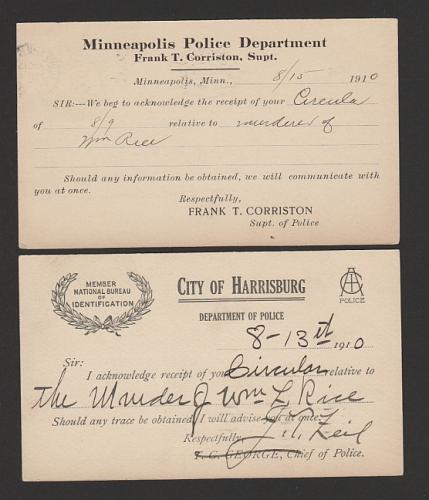 Minneapolis Police Department
Frank T. Corriston, Supt.
Minneapolis, Minn., 8/15 1910
SIR:—We beg to acknowledge the receipt of your Circular
of 8/9 relative to murderer of
Wm Rice
Should any information be obtained, we will communicate with
you at once.
Respectfully,
FRANK T. CORRISTON
Supt. of Police
MEMBER
NATIONAL BUREAU
OF
IDENTIFICATION
CITY OF HARRISBURG
POLICE
DEPARTMENT OF POLICE
8-13th 1910
Sir:
I acknowledge receipt of your Circular relative to
the Murder of Wm L Rice
Should any trace be obtained, I will advise you at once.
Respectfully,
T. G. GEORGE, Chief of Police.